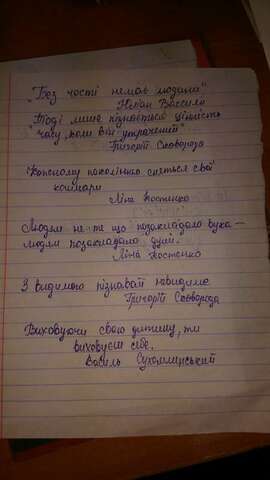 "Без честі немає людини"
Іван Василь
"Тоді лише пізнається цінність
часу, коли він утрачений"
Григорій Сковорода
Кожному поколінню сняться свої
кошмари
Ліна Костенко
Людям не те що позакладало вуха —
людям позакладало душі.
Ліна Костенко
З видимого пізнавай невидиме
Григорій Сковорода
Виховуючи свою дитину, ти
виховуєш себе.
Василь Сухомлинський